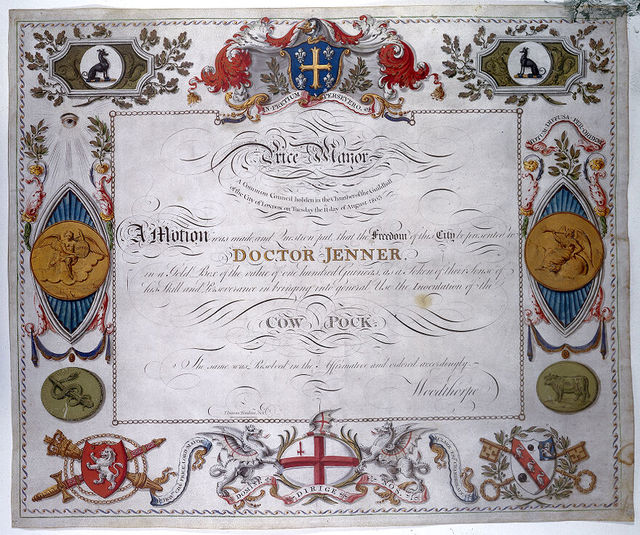 IN PRETIUM PERSEVERO
Price Mayor
A Common Council holden in the Chamber of the Guildhall
of the City of London on Tuesday the 11 day of August 1803
A Motion was made, and Question put, that the Freedom of this City be presented to
DOCTOR JENNER
in a Gold Box of the value of one hundred Guineas, as a Token of their Sense of
his Skill and Perseverance in bringing into general Use the Inoculation of the
COW POCK.
The same was Resolved in the Affirmative and ordered accordingly.
Woodthorpe
Thomas Tomkins
DOMINE DIRIGE NOS